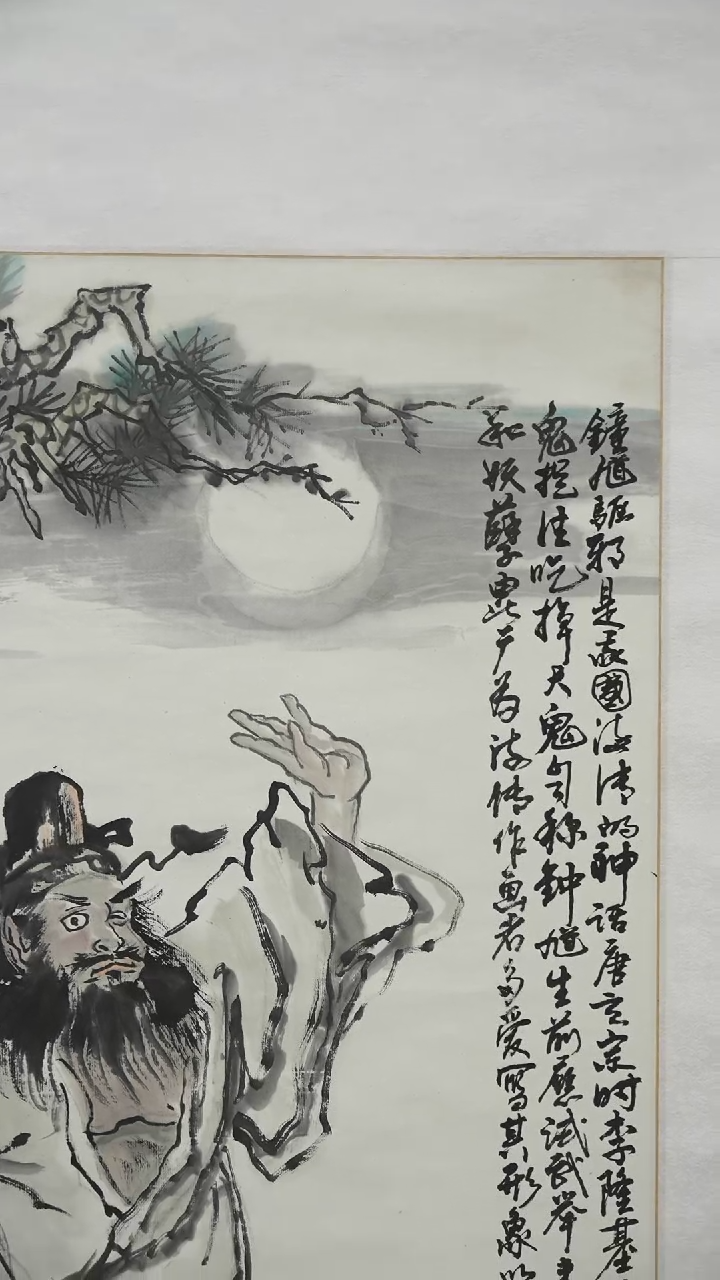 鐘馗驅邪是我國流傳的神話唐玄宗时李隆基
鬼捉住吃掉大鬼自称鈡馗生前應試武举
和妖孽 户为流傳作画者多爱寫其形象